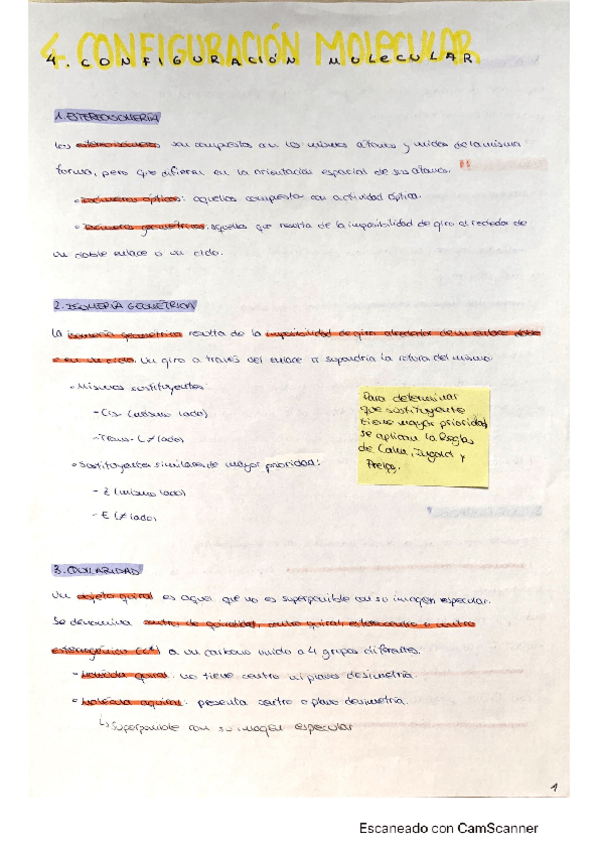 4. CONFIGURACIÓN MOLECULAR
4. CONFIGURACIÓN MOLECULAR
1. ESTEREOISOMERÍA
Los estereoisómeros son compuestos con los mismos átomos y unidos de la misma
forma, pero que difieren en la orientación espacial de sus átomos.
• isómeros ópticos: aquellos compuestos con actividad óptica.
• isómeros geométricos: aquellos que resulta de la imposibilidad de giro alrededor de
un doble enlace o un ciclo.
2. ISOMERÍA GEOMÉTRICA
La isomería geométrica resulta de la imposibilidad de giro alrededor de un enlace doble
o en un ciclo. Un giro a través del enlace π supondría la rotura del mismo
• Mismos sustituyentes
- Cis- (mismo lado)
- Trans- (≠ lado)
• Sustituyentes similares de mayor prioridad:
- Z (mismo lado)
- E (≠ lado)
Para determinar
que sustituyente
tiene mayor prioridad
se aplican la Reglas
de Cahn, Ingold y
Prelog.
3. QUILARIDAD
Un objeto quiral es aquel que no es superponible con su imagen especular.
Se denomina centro de quiralidad, centro quiral, estereocentro o centro
estereogénico (C*) a un carbono unido a 4 grupos diferentes.
• Molécula quiral: no tiene centro ni plano de simetría.
• Molécula aquiral: presenta centro o plano de simetría.
↳ Superponible con su imagen especular
1
Escaneado con CamScanner